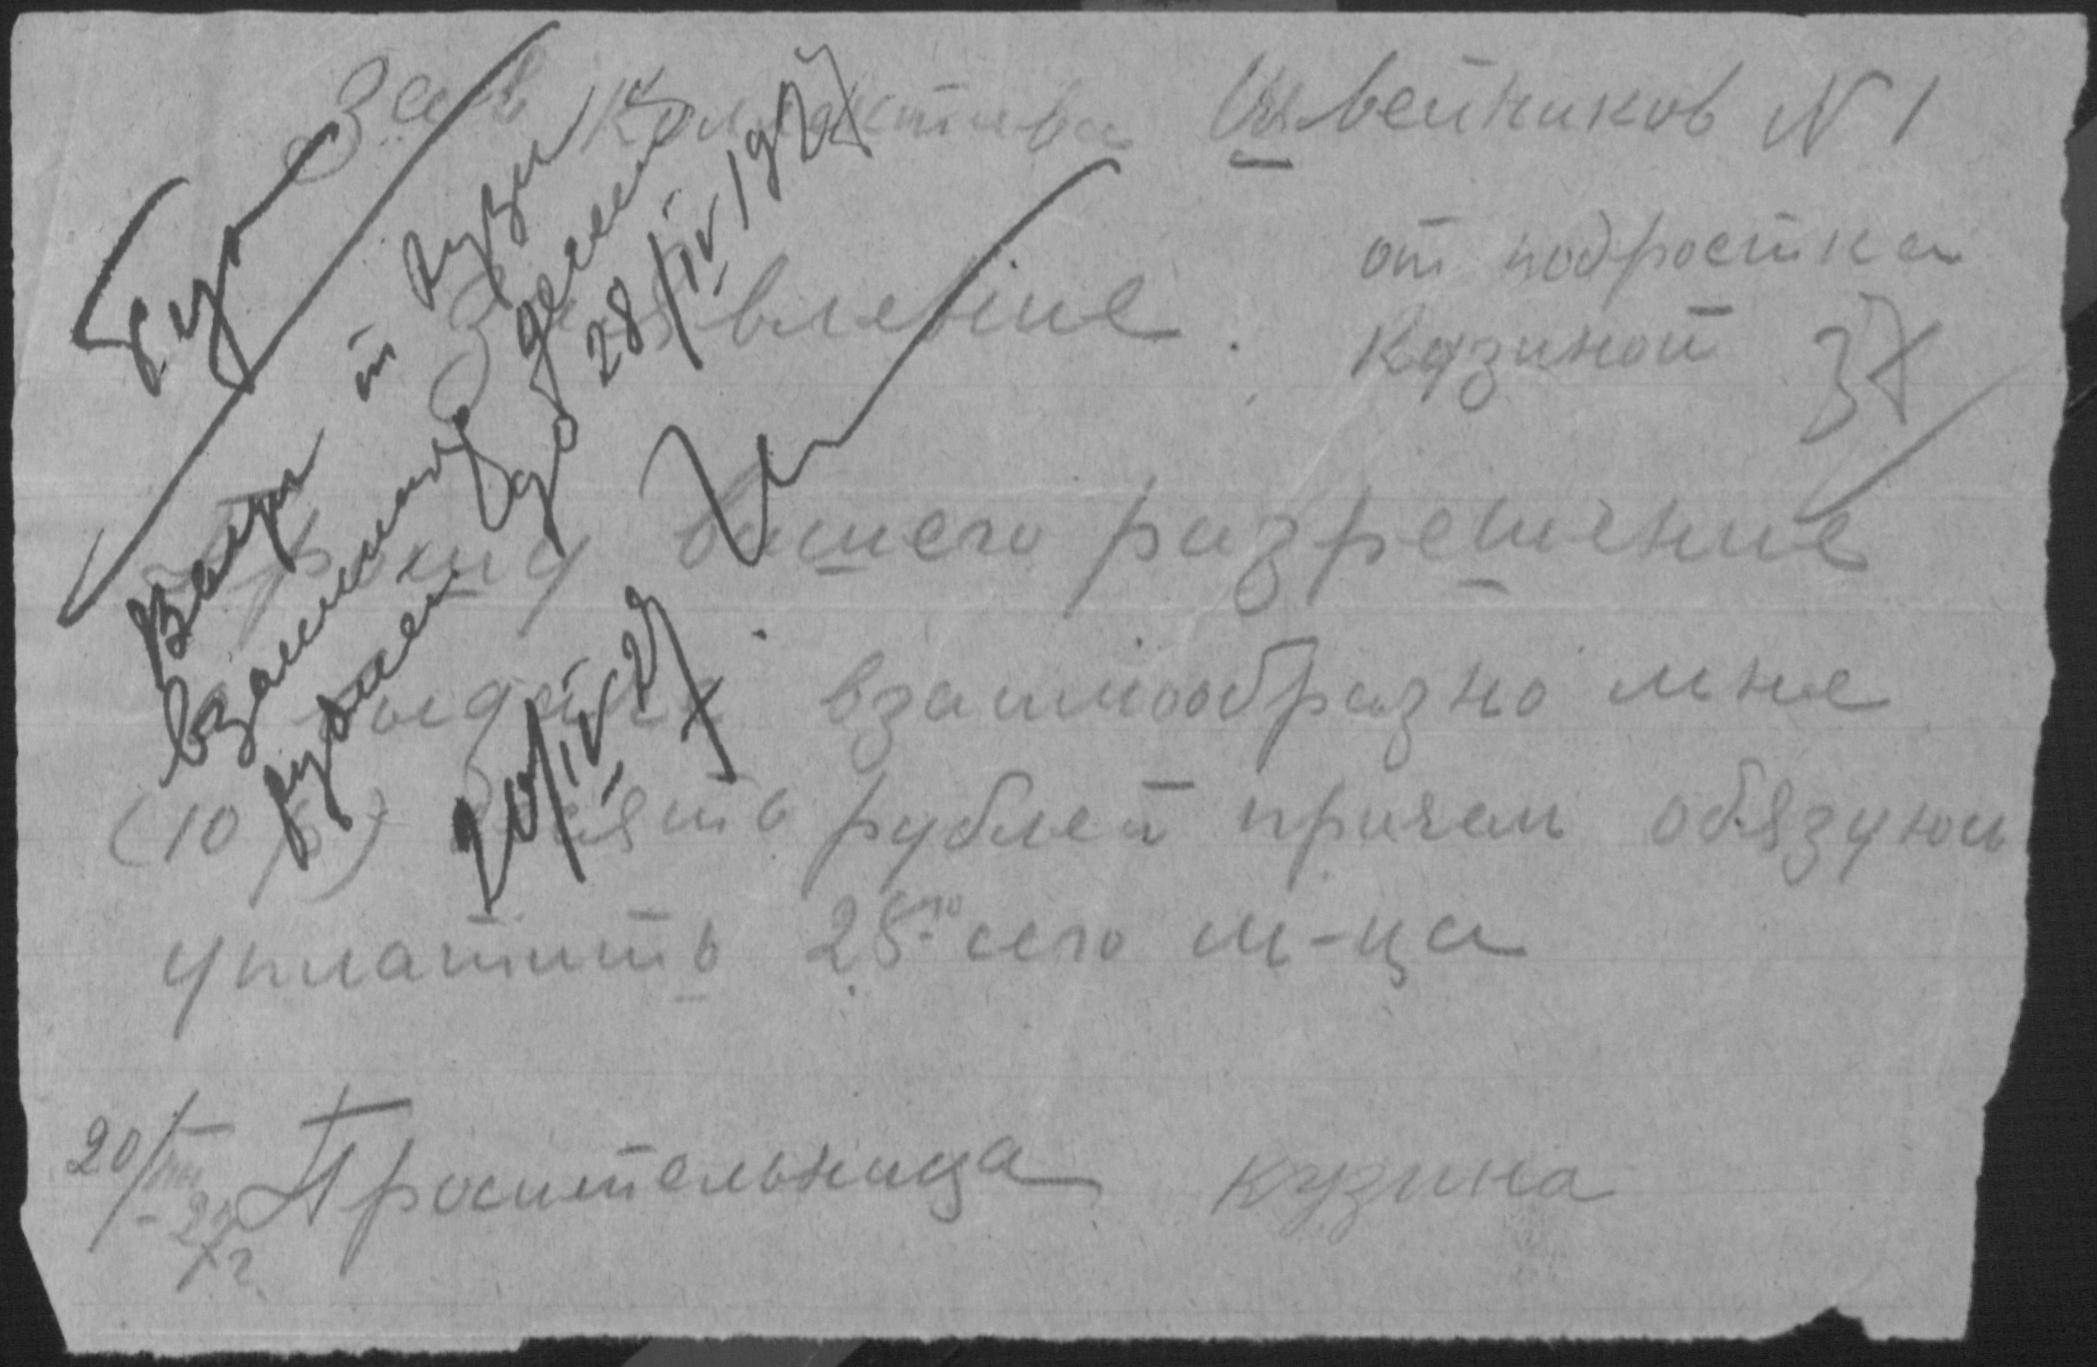 Зав Коллектива Швейников N 1
от подростка
Кузиной 37
Заявление
Прошу вашего разрешение
выдать взаимообразно мне
(10 р) десять рублей причем обязуюсь
уплатить 28го сего м-ца
20/ 27 г Просительница Кузина
Бух
взаимообразно десять
рублей до 28/IV 1927
20/IV 27